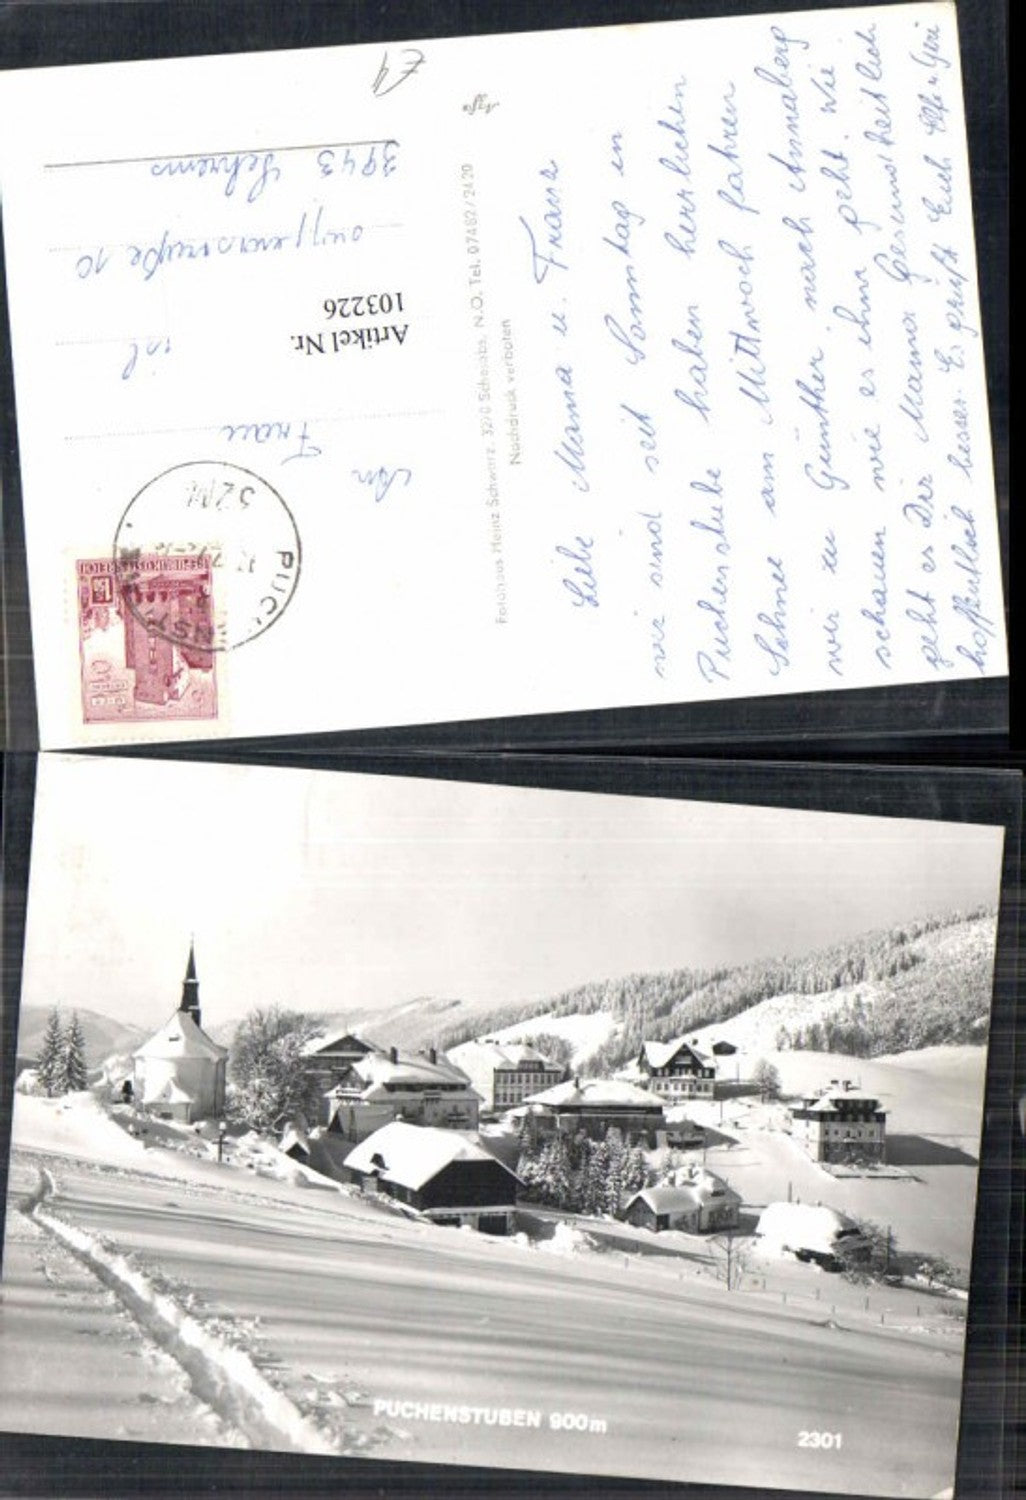 Liebe Mama u. Franz
wir sind seit Sonntag in
Puchenstube haben herrlichen
Schnee am Mittwoch fahren
wir zu Günther nach Annaberg
schauen wie es ihm geht. Wie
geht es Dir Mama Gesundheitlich
hoffentlich besser. Es grüßt Euch
Agfa
Fotohaus Heinz Schwarz, 3270 Scheibbs, N.Ö. Tel. 07482/2420
Nachdruck verboten
REPUBLIK ÖSTERREICH
An
Frau
Artikel Nr.
103226
10
3943 Schrems
PUCHENSTUBEN 900m
2301